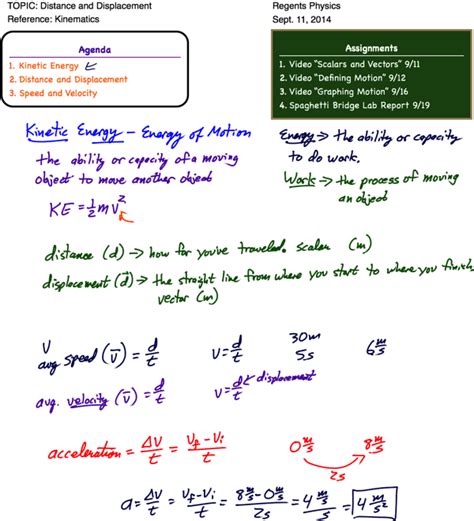 TOPIC: Distance and Displacement
Reference: Kinematics
Regents Physics
Sept. 11, 2014
Agenda
1. Kinetic Energy
2. Distance and Displacement
3. Speed and Velocity
Assignments
1. Video "Scalars and Vectors" 9/11
2. Video "Defining Motion" 9/12
3. Video "Graphing Motion" 9/16
4. Spaghetti Bridge Lab Report 9/19
Kinetic Energy – Energy of Motion
the ability or capacity of a moving
object to move another object
KE = ½ m v²
Energy → the ability or capacity
to do work.
Work → the process of moving
an object
distance (d) → how far you've traveled. scalar (m)
displacement (d⃗) → the straight line from where you start to where you finish
vector (m)
V
avg speed (v̅) = d/t
v = d/t
30m
5s
6 m/s
avg. velocity (v̅) = d/t
v = d/t ← displacement
acceleration = ΔV/t = (Vf - Vi)/t
0 m/s
8 m/s
2s
a = ΔV/t = (Vf - Vi)/t = (8 m/s - 0 m/s)/2s = 4 m/s/s = 4 m/s²